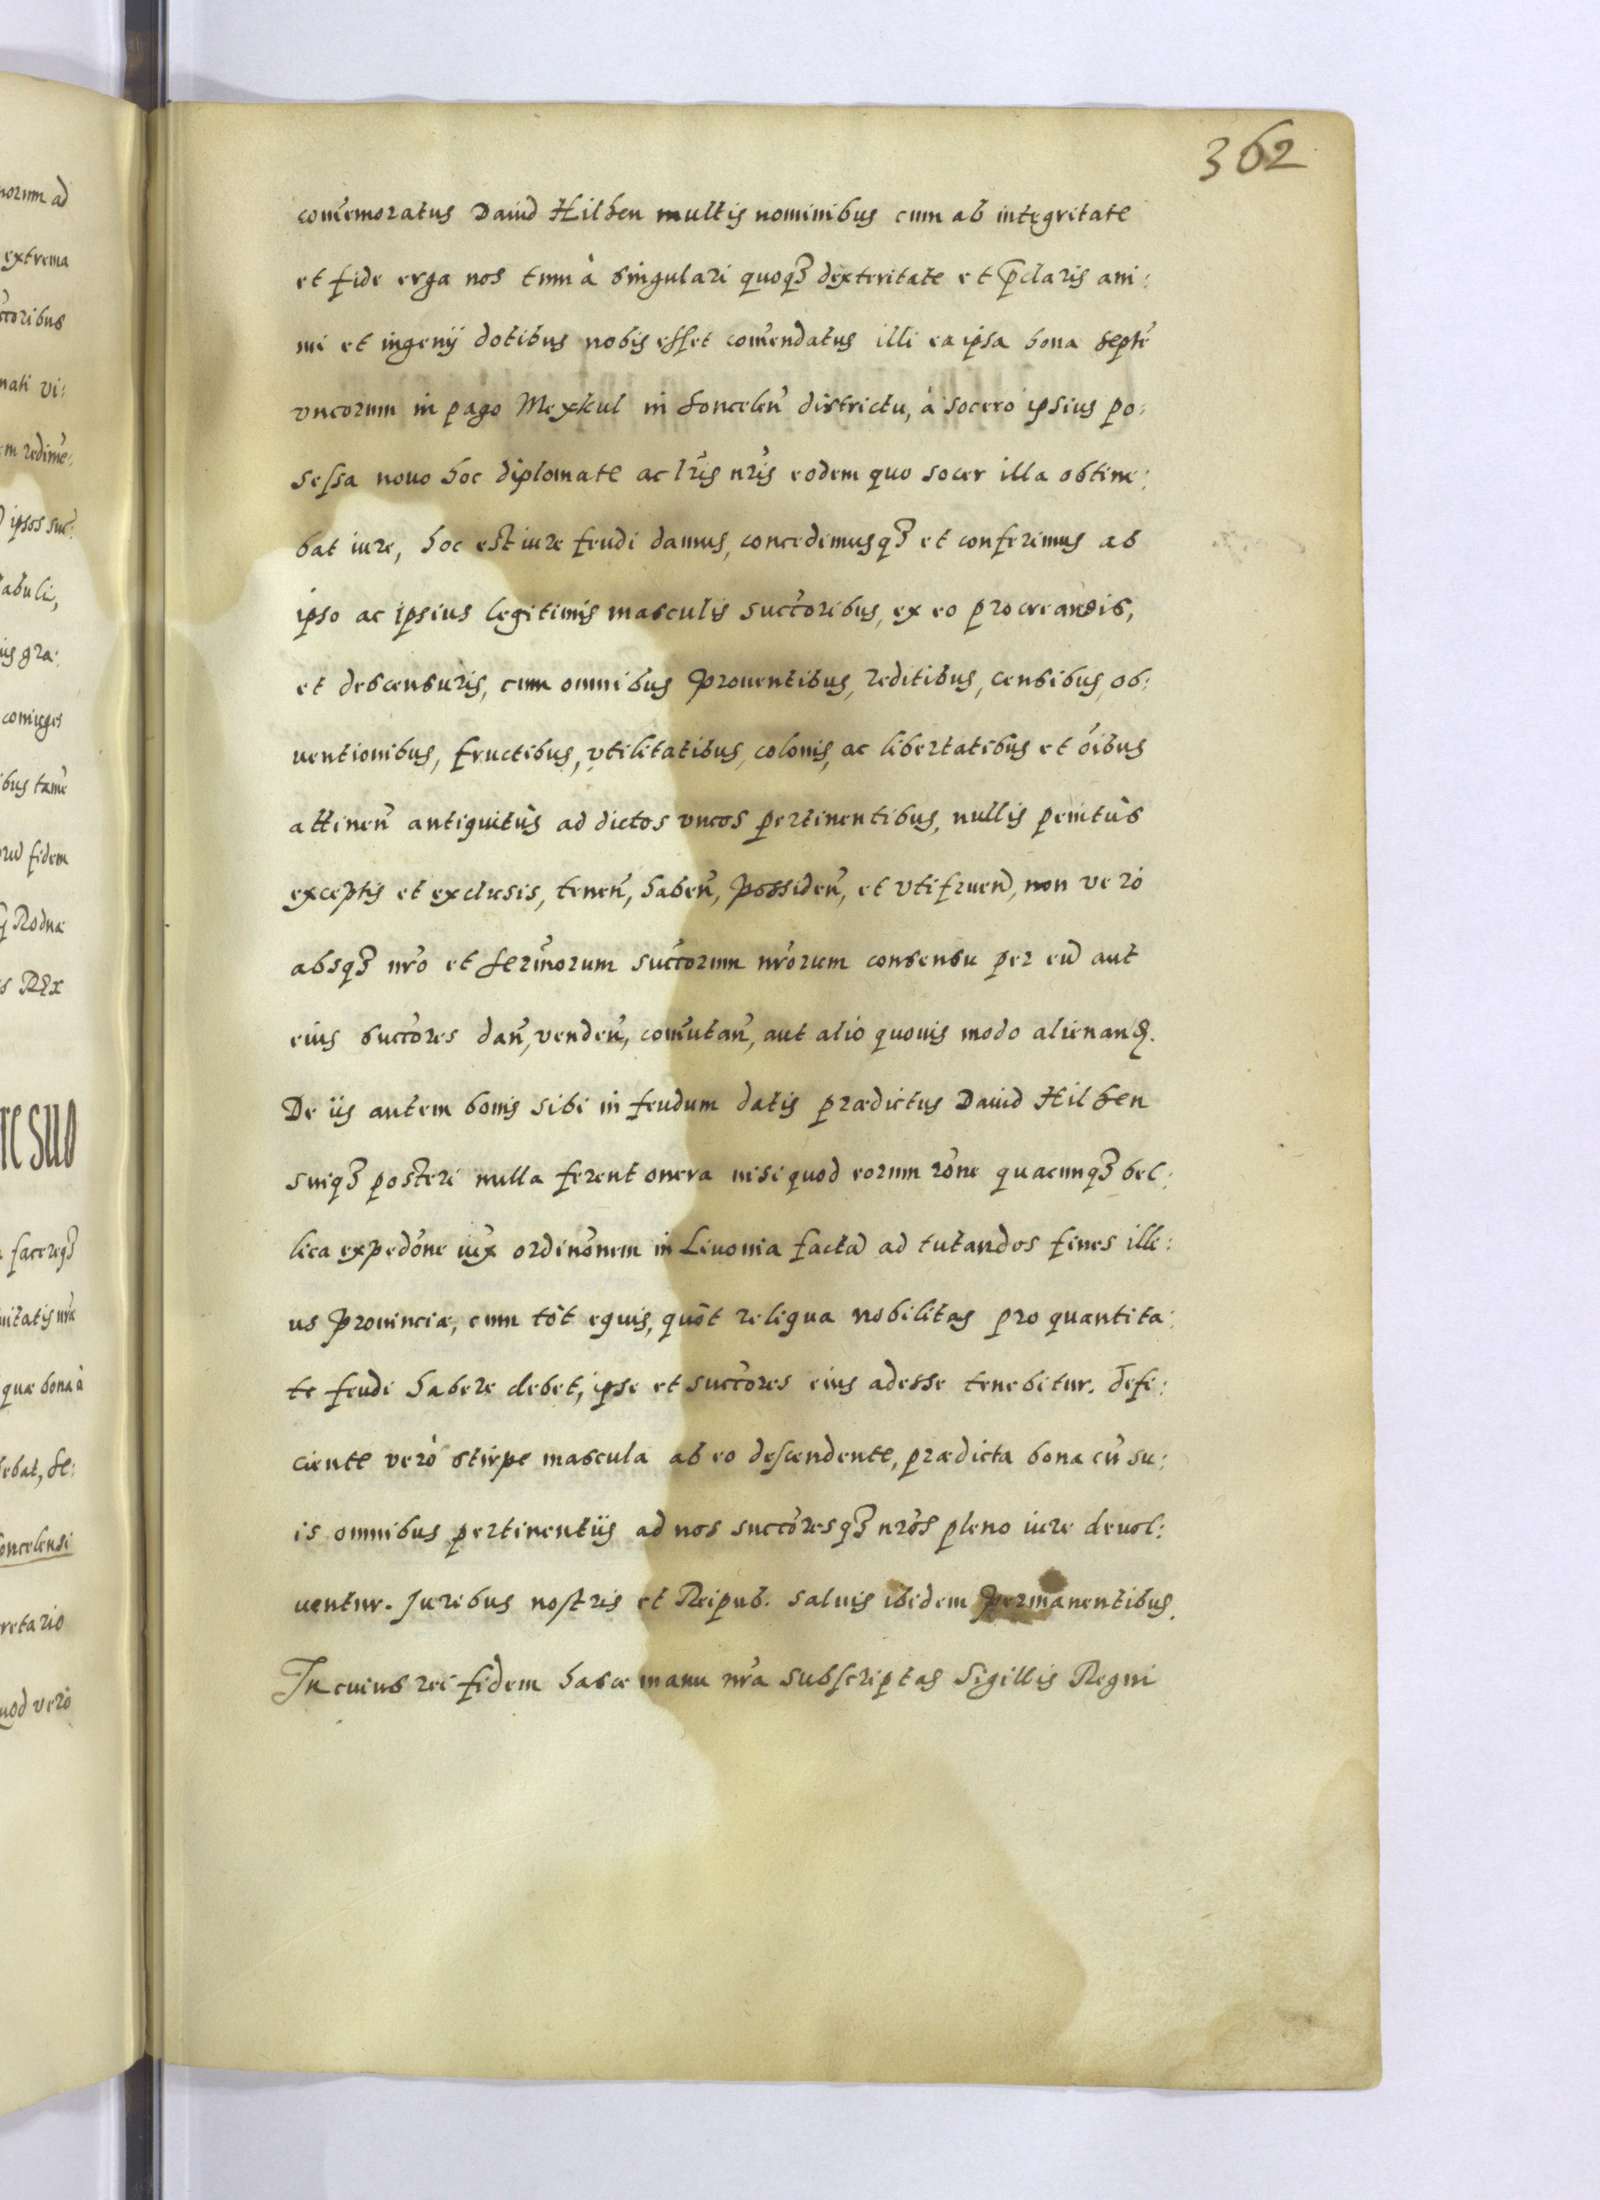 362
com̃emoratus Dauid Hilhen multis nominibus cum ab integritate
et fide erga nos tum à singulari quoqȝ dexteritate et p̃claris ani:
mi et ingenij dotibus nobis esset com̃endatus illi ea ipsa bona septẽ
vncorum in pago Mexkul in Soncelen̄ districtu, à socero ipsius po:
sessa nouo hoc diplomate ac lr̃is nr̃is eodem quo socer illa obtine:
bat iure, hoc est iure feudi damus, concedimusqȝ et conferimus ab
ipso ac ipsius legitimis masculis succ̃oribus, ex eo procreandis,
et descensuris, cum omnibus prouentibus, reditibus, censibus, ob:
uentionibus, fructibus, vtilitatibus, colonis, ac libertatibus et õibus
attinen̄ antiquitùs ad dictos vncos pertinentibus, nullis penitùs
exceptis et exclusis, tenen̄, haben̄, possiden̄, et vtifruen̄, non verò
absqȝ nr̃o et Serm̃orum succ̃orum nr̃orum consensu per eũ aut
eius succ̃ores dan̄, venden̄, com̃utan̄, aut alio quouis modo alienanđ.
De iis autem bonis sibi in feudum datis prædictus Dauid Hilhen
suiqȝ posteri nulla ferent onera nisi quod eorum rõne quacunqȝ bel:
lica expedõne iux̃ ordinõnem in Liuonia factã ad tutandos fines illi:
us prouinciæ, cum tòt equis, quòt reliqua nobilitas pro quantita:
te feudi habere debet, ipse et succ̃ores eius adesse tenebitur. Defi:
ciente verò stirpe mascula ab eo descendente, prædicta bona cũ su:
is omnibus pertinentiis ad nos succ̃oresqȝ nr̃os pleno iure deuol:
uentur. Juribus nostris et Reipub. saluis ibidem permanentibus.
In cuius rei fidem hasce manu nr̃a subscriptas Sigillis Regni